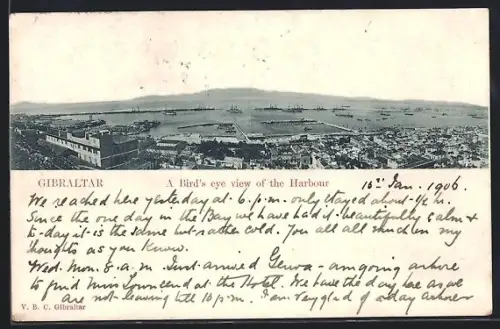 GIBRALTAR A Bird's eye view of the Harbour 16th Jan. 1906.
We reached here yesterday at 6.p.m. only stayed about 1/2 hr.
Since the one day in the Bay we have had it beautifully calm &
to-day it is the same but rather cold. You all all much in my
thoughts as you know.
Wed. Morn. 8.a.m. Just arrived Genoa - am going ashore
to find Miss Townsend at the Hotel. We have the day here as we
are not leaving till 10 p.m. I am very glad of a day ashore
V. B. C. Gibraltar